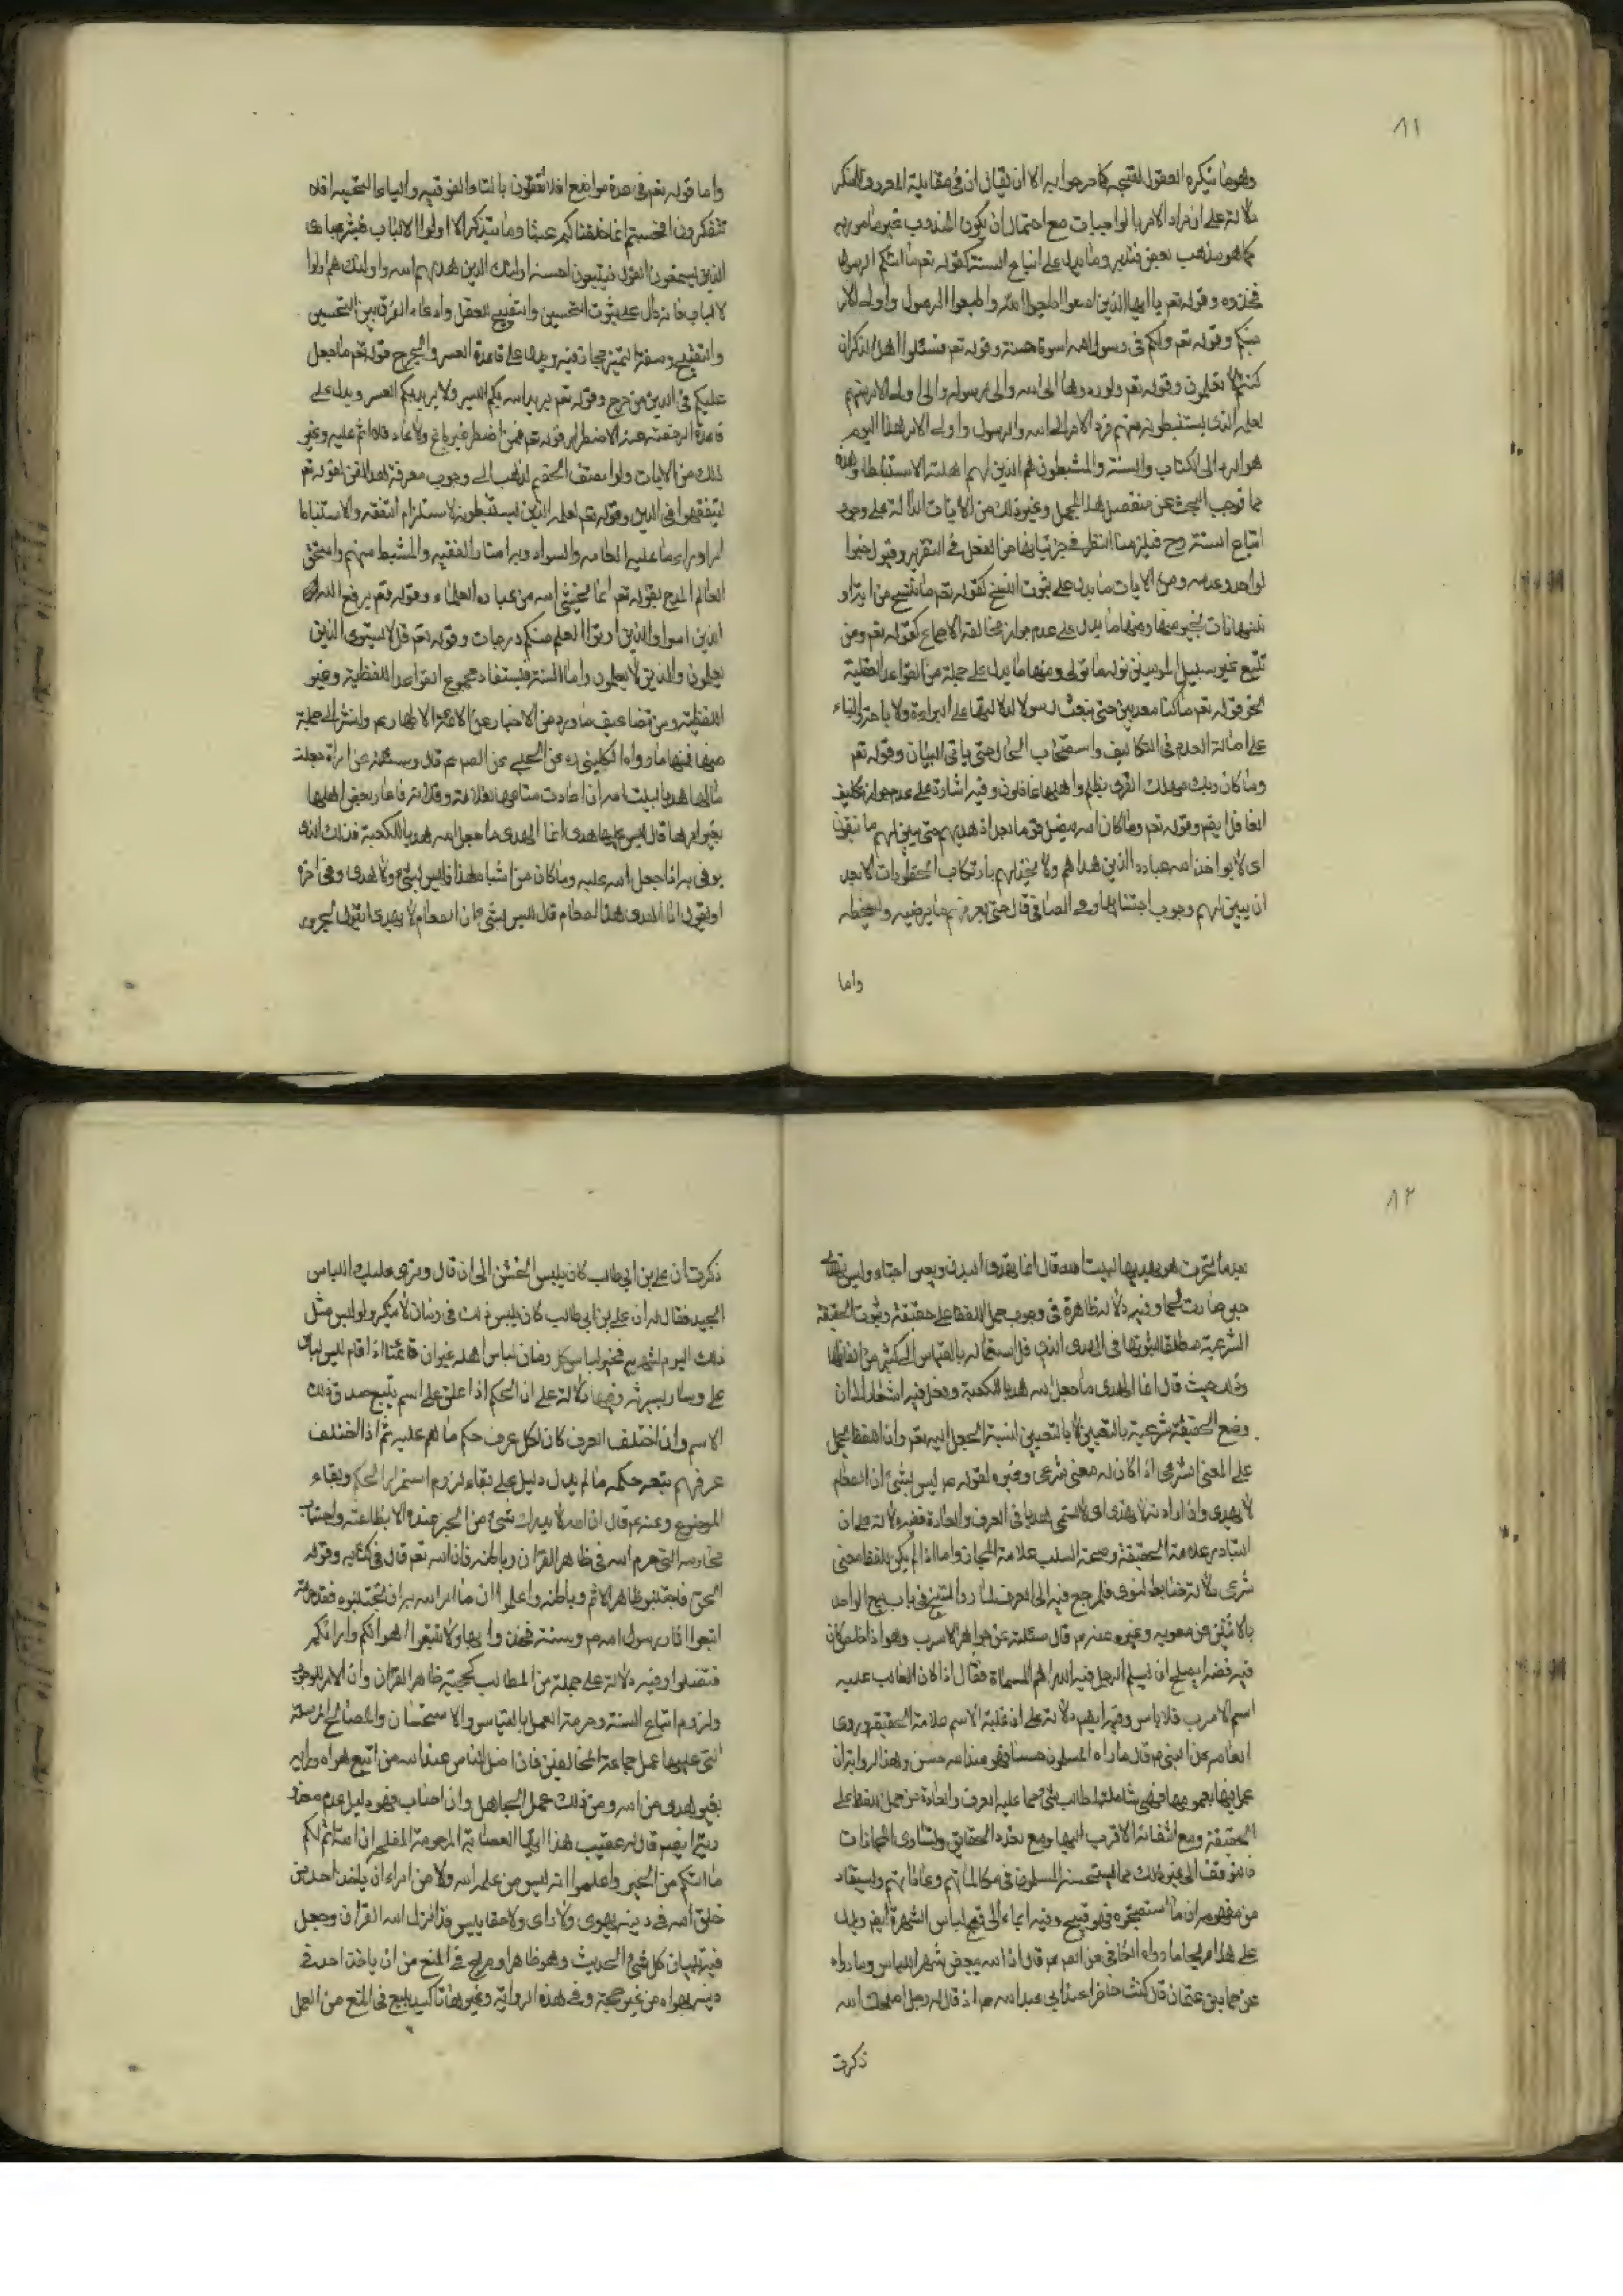 ٨١
وهو ما ينكره العقول لقبحه كما صرحوا به الا ان يقال ان في مقابلة المعروف للمنكر
دلالة على ان مراد الامر بالواجبات مع احتمال ان يكون المندوب غير مامور به
كما هو مذهب بعض فتدبر وما يدل على اتباع السنة كقوله تعم ما اتيكم الرسول
فخذوه وقوله تعم يا ايها الذين امنوا اطيعوا الله واطيعوا الرسول واولى الامر
منكم وقوله تعم ولكم في رسول الله اسوة حسنة وقوله تعم فسئلوا اهل الذكر ان
كنتم لا تعلمون وقوله تعم ولو ردوها الى الله والى رسوله والى اولى الامر منهم
لعلمه الذى يستنبطونه منهم فرد الامر الى الله والرسول واولى الامر هذا اليوم
هو الرد الى الكتاب والسنة والمستنبطون هم الذين لهم اهلية الاستنباط وهذه
مما توجب البحث عن مفصل هذا المجمل وغير ذلك من الايات الدالة على وجوب
اتباع السنة وح فيلزمنا النظر في جزئياتها من الفعل في التقرير وقبول خبر ا
لواحد وعدمه ومن الايات ما يدل على ثبوت النسخ كقوله تعم ما ننسخ من اية او
ننسها نات بخير منها ومنها ما يدل على عدم جواز مخالفة الاجماع كقوله تعم ومن
يتبع غير سبيل المومنين نوله ما تولى ومنها ما يدل على جملة من القواعد العقلية
نحو قوله تعم ما كنا معذبين حتى نبعث رسولا لدلالتها على البراءة والاباحة والبناء
على اصالة العدم في التكاليف واستصحاب الحال حتى ياتي البيان وقوله تعم
وما كان ربك مهلك القرى بظلم واهلها غافلون وفيه اشارة على عدم جواز تكليف
الغافل ايضم وقوله تعم وما كان الله ليضل قوما بعد اذ هديهم حتى يبين لهم ما يتقون
اى لا يواخذ الله عباده الذين هداهم ولا يخذلهم بارتكاب المحظورات الا بعد
ان يبين لهم وجوب اجتنابها وعن الصادق قال حتى يعرفهم ما يرضيه وما يسخطه
واما
واما قوله تعم في عدة مواضع افلا تعقلون بالتاء الفوقيه والياء التحتيه افلا
تتفكرون افحسبتم انما خلقناكم عبثا وما يتذكر الا اولوا الالباب فبشر عبادى
الذين يستمعون القول فيتبعون احسنه اولئك الذين هديهم الله واولئك هم اولوا
لالباب فانه دال على ثبوت التحسين والتقبيح العقل وادعاء الفرق بين التحسين
والتقبيح وصفة التميز مجازفة ويدل على قاعدة العسر والحرج قوله تعم ما جعل
عليكم في الدين من حرج وقوله تعم يريد الله بكم اليسر ولا يريد بكم العسر ويدل على
قاعدة الرخصة عند الاضطرار قوله تعم فمن اضطر غير باغ ولا عاد فلا اثم عليه وغير
ذلك من الايات ولو انصف الخصم لذهب الى وجوب معرفة هذا الفن لقوله تعم
ليتفقهوا في الدين وقوله تعم لعلمه الذين يستنبطونه لاستلزام التفقه والاستنباط
امرا وراء ما عليه العامه والسواد وبه امتاز الفقيه والمستنبط منهم واستحق
العالم المدح بقوله تعم انما يخشى الله من عباده العلماء وقوله تعم يرفع الله
الذين امنوا والذين اوتوا العلم منكم درجات وقوله تعم قل لا يستوى الذين
يعلمون والذين لا يعلمون واما السنة فيستفاد مجموع القواعد اللفظية وغير
اللفظية من تضاعيف ما ورد من الاخبار عن الائمة الاطهار عم ولنشر الى جملة
منها فمنها ما رواه الكليني ره عن الحلبي عن الصم عم قال وسئلته عن امراة جعلت
مالها هديا لبيت الله ان اعارت متاعها لفلانة وفلانة فاعار بعض اهلها
بغير امرها قال ليس عليها هدى انما الهدى ما جعل لله هديا للكعبة فذلك الذى
يوفى به اذا جعل لله عليه وما كان من اشباه هذا فليس بشئ ولا هدى وفي اخره
او يقول انا اهدى هذا الطعام قال ليس بشئ ان الطعام لا يهدى او يقول لجزور
٨٢
بعد ما نحرت هو يهديها لبيت الله قال انما يهدى البدن وهي احياء وليس
حين صارت لحما وفيه دلالة ظاهرة في وجوب حمل اللفظ على حقيقته وثبوت الحقيقة
الشرعية مطلقا لثبوتها في الهدى الذى قل استعماله بالقياس الى كثير من الفاظها
وذلك حيث قال انما الهدى ما جعل لله هديا للكعبة ودخل فيه اشعار لان
وضع الحقيقة شرعية بالتعيين لا بالتعين لنسبة الجعل اليه تعم وان اللفظ يحمل
على المعنى الشرعى اذا كان له معنى شرعى وغيره لقوله عم ليس بشئ ان الطعام
لا يهدى وان اراد انه لا يهدى اى لا يسمى هديا في العرف والعادة ففيه دلالة على ان
التبادر علامة الحقيقة وصحة السلب علامة المجاز واما اذا لم يكن للفظ معنى
شرعى ولا له ضابط لغوى فالمرجع فيه الى العرف لما رواه الشيخ في باب بيع الواحد
بالاثنين عن معويه وغيره عنه عم قال سئلته عن جواهر الاسرب وهو اذا خلص كان
فيه فضة ايصلح ان يسلم الرجل فيه الدراهم المسماة فقال اذا كان الغالب عليه
اسم الاسرب فلا باس وفيه ايضم دلالة على ان غلبة الاسم علامة الحقيقة وروى
العامه عن النبي ص قال ما راه المسلمون حسنا فهو عند الله حسن وهذا الرواية ان
عمل فيها بعمومها فهي شاملة لمطالب شتى مما عليه العرف والعادة من حمل اللفظ على
الحقيقة ومع انتفائه الاقرب اليها ومع تعذر الحقايق وتساوى المجازات
فالتوقف الى غير ذلك مما يستحسنه المسلمون في مكالماتهم وعاداتهم ويستفاد
من مفهومه ان ما استقبحوه فهو قبيح وفيه ايماء الى قبح لباس الشهرة ايضم ويدل
على هذا صريحا ما رواه الكافى عن الصم عم قال ان الله يبغض شهرة اللباس وما رواه
عن حماد بن عثمان قال كنت حاضرا عند ابي عبد الله عم اذ قال له رجل اصلحك الله
ذكرت
ذكرت ان على بن ابي طالب كان يلبس الخشن الى ان قال ونرى عليك اللباس
الجيد فقال له ان على بن ابي طالب كان يلبس ذلك في زمان لا ينكر ولو لبس مثل
ذلك اليوم لشهر به فخير لباس كل زمان لباس اهله غير ان قائمنا اذا قام لبس لباس
على وسار بسيرته وفيها دلالة على ان الحكم اذا علق على اسم يتبع صدق ذلك
الاسم وان اختلف العرف كان لكل عرف حكم ما هم عليه ثم اذا اختلف
عرفهم يتبعه حكمه ما لم يدل دليل على بقاءه لزوم استمرار الحكم وبقاء
الموضوع وعنه عم قال ان الله لا يدرك شئ من الخير عنده الا بطاعته واجتناب
محارمه التى حرم الله في ظاهر القران وباطنه فان الله تعم قال في كتابه وقوله
الحق فاجتنبوا ظاهر الاثم وباطنه واعلموا ان ما امر الله به ان تجتنبوه فقد حرمه
اتبعوا اثار رسول الله ص وسنته فخذوا بها ولا تتبعوا اهوائكم وارائكم
فتضلوا وفيه دلالة على جملة من المطالب كحجية ظاهر القران وان الامر للوجوب
ولزوم اتباع السنة وحرمة العمل بالقياس والاستحسان والمصالح المرسلة
التى عليها عمل جماعة المخالفين فان اضل الناس عند الله من اتبع هواه ورايه
بغير هدى من الله ومن ذلك عمل الجاهل وان اصاب فهو دليل عدم معذو
ريته ايضم قال عم عقيب هذا ايتها العصابة المرحومة المفلحه ان الله اتم لكم
ما اتيكم من الخير واعلموا انه ليس من علم الله ولا من امره ان ياخذ احد من
خلق الله في دينه بهوى ولا راى ولا مقاييس قد انزل الله القران وجعل
فيه تبيان كل شئ الحديث وهو ظاهر او صريح في المنع من ان ياخذ احد في
دينه بهواه من غير حجة وفي هذه الرواية وغيرها تاكيد بليغ في المنع من العمل